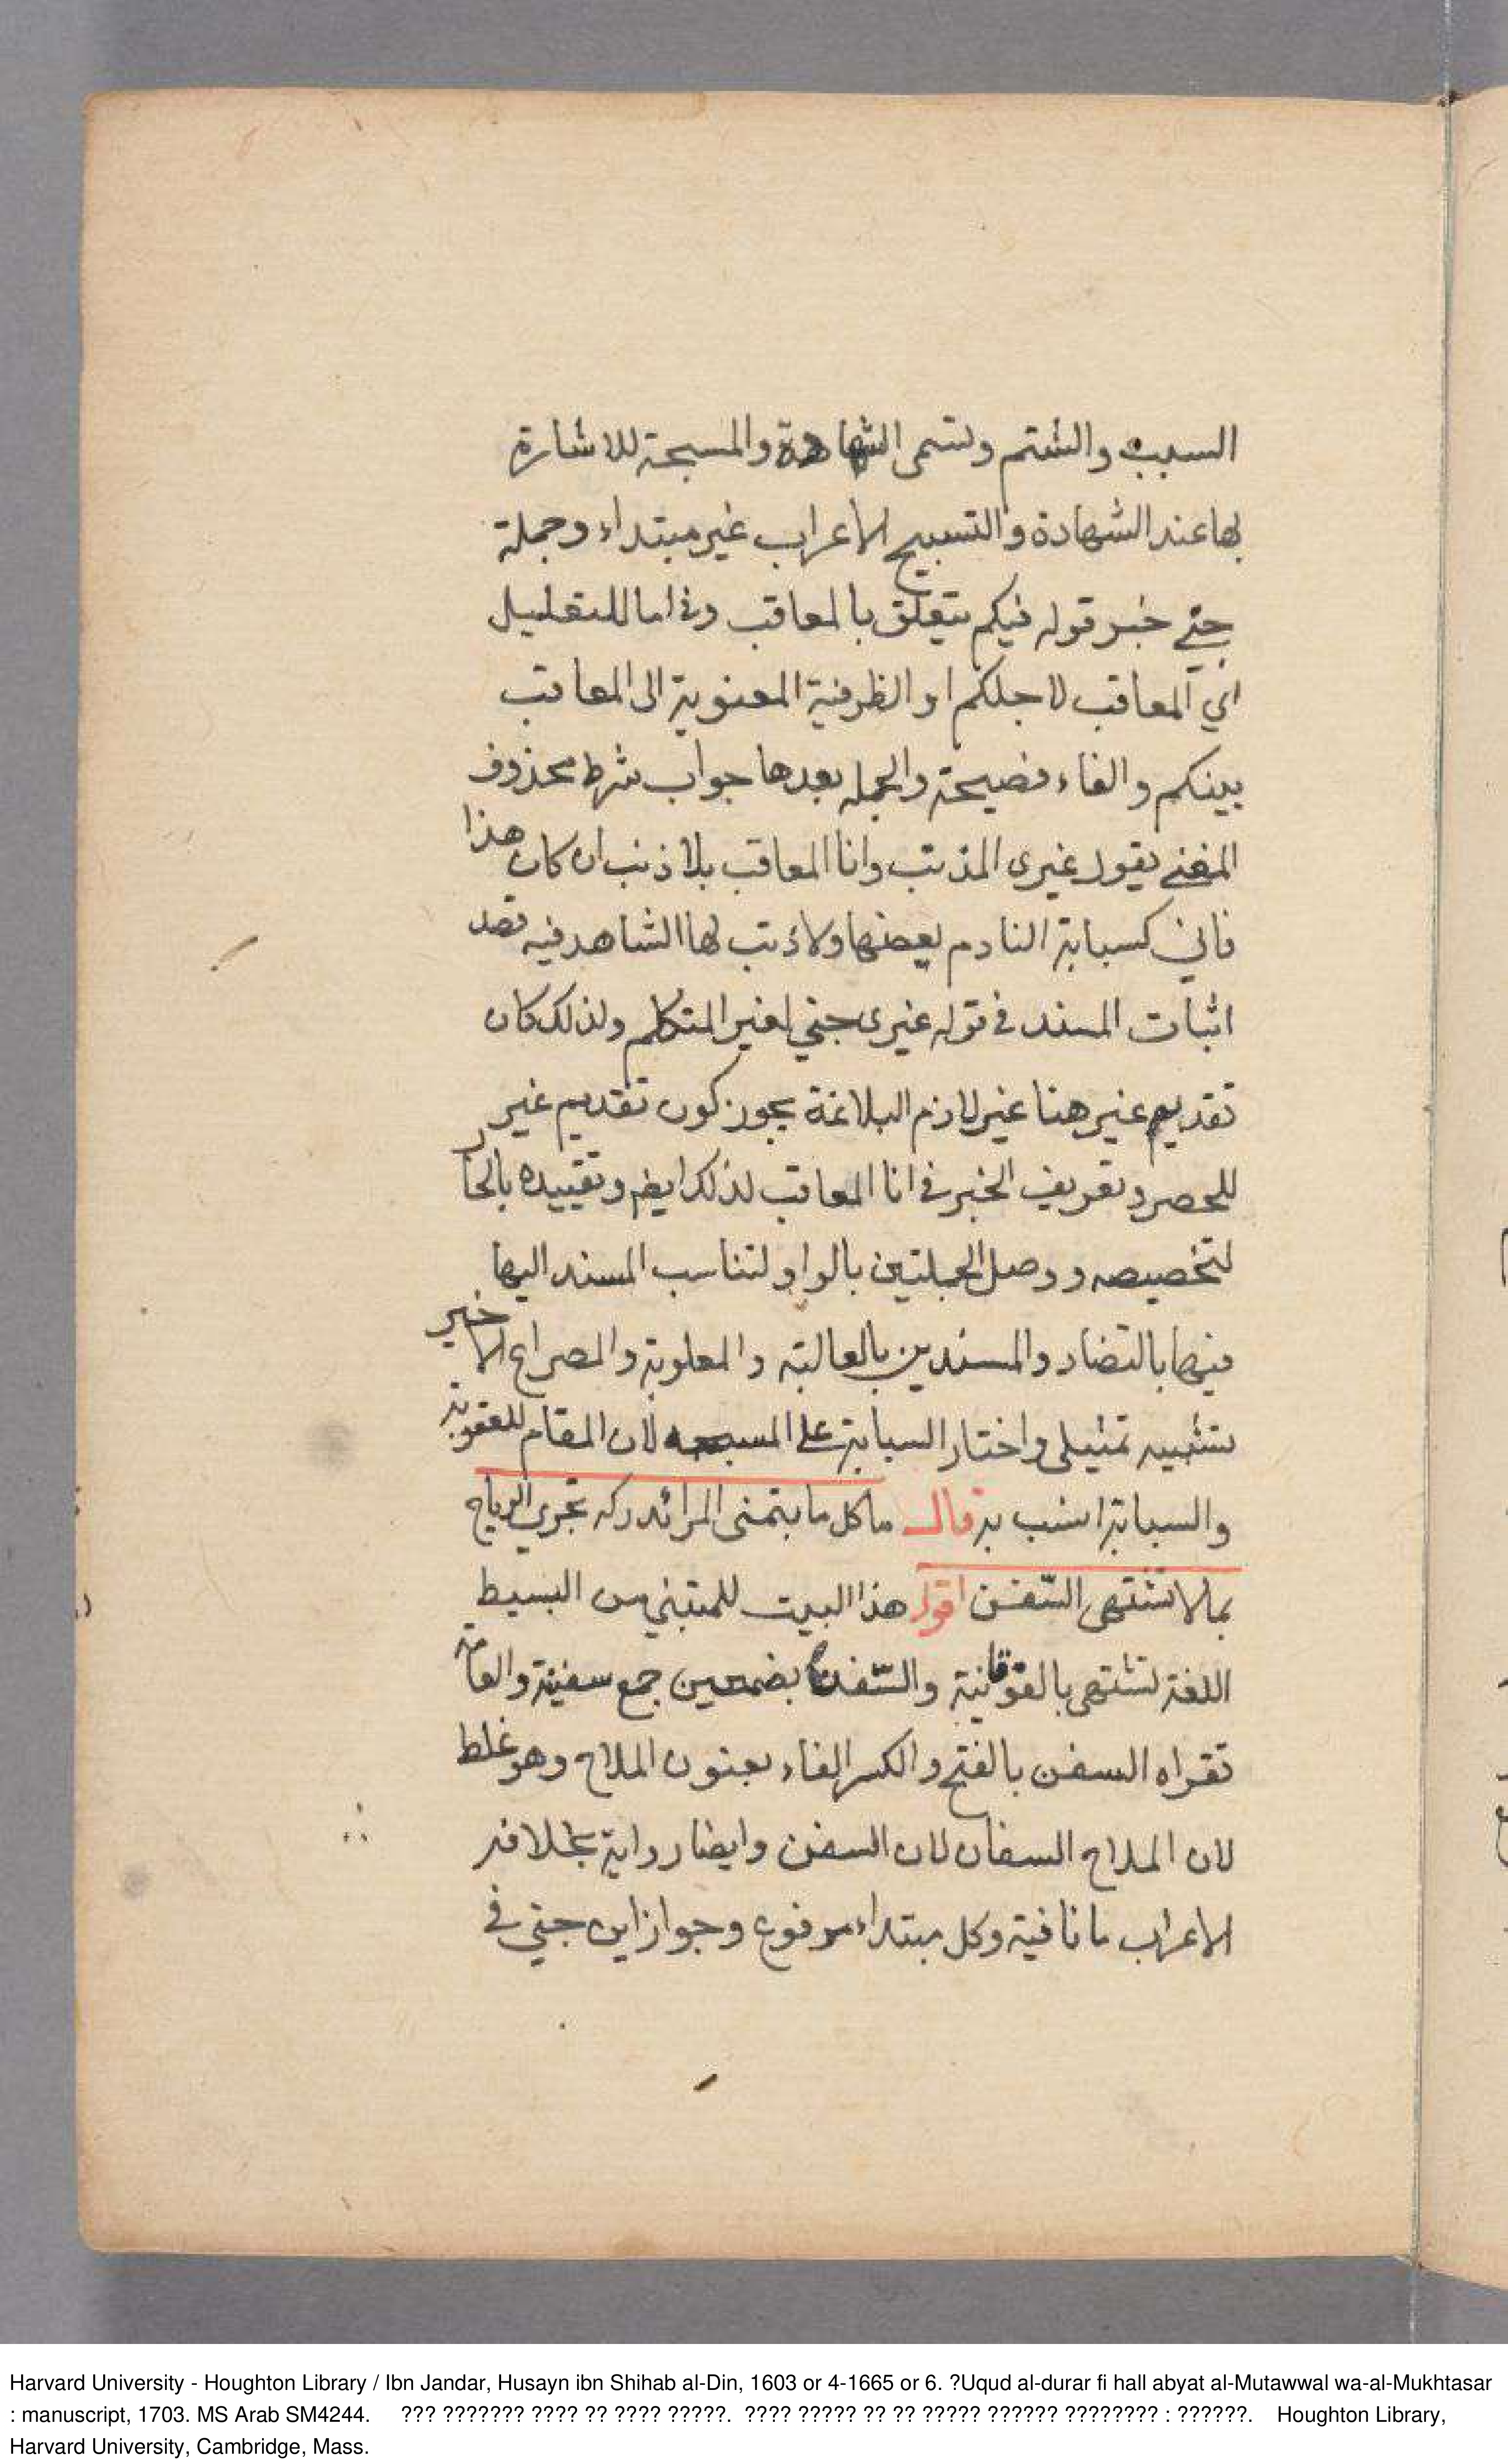 السبب والشتم وتسمى الشهادة والمسبحة للاشارة
بها عند الشهادة والتسبيح الاعراب غير مبتداء وجملة
جنى خبر قوله فيكم يتعلق بالمعاقب وفى اما للتعليل
اي المعاقب لاجلكم او الظرفية المعنوية الى المعاقب
بينكم والفاء فصيحة والجمله بعدها جواب شرط محذوف
المعنى يقول غيرى المذنب وانا المعاقب بلا ذنب ان كان هذا
فاني كسبابة النادم يعضها ولا ذنب لها الشاهد فيه قصد
اثبات المسند في قوله غيرى جني لغير المتكلم ولذلك كان
تقديم غير هنا غير لازم البلاغة يجوز كون تقديم غير
للحصر وتعريف الخبر في انا المعاقب لذلك ايضا وتقييده بالجار
لتخصيصه ووصل الجملتين بالواو لتناسب المسند اليها
فيها بالتضاد والمسندين بالعالية والمعلوية والمصراع الاخير
تشبيه تمثيلى واختار السبابة على المسبحه لان المقام للعقوبة
والسبابة انسب به قال ما كل ما يتمنى المرا يدركه تجري الرياح
بما لا تشتهى السّفن اقول هذا البيت للمتنبي من البسيط
اللغة تشتهى بالفوقانية والسّفن بضمتين جمع سفينة والعامة
تقراه السفن بالفتح والكسر الفاء يعنون الملاح وهو غلط
لان الملاح السفان لان السفن وايضا رواية بخلافه
الاعراب ما نافية وكل مبتداء مرفوع وجواز ابن جني في
Harvard University - Houghton Library / Ibn Jandar, Husayn ibn Shihab al-Din, 1603 or 4-1665 or 6. ?Uqud al-durar fi hall abyat al-Mutawwal wa-al-Mukhtasar
: manuscript, 1703. MS Arab SM4244. ??? ??????? ???? ?? ???? ?????. ???? ????? ?? ?? ????? ?????? ???????? : ??????. Houghton Library,
Harvard University, Cambridge, Mass.